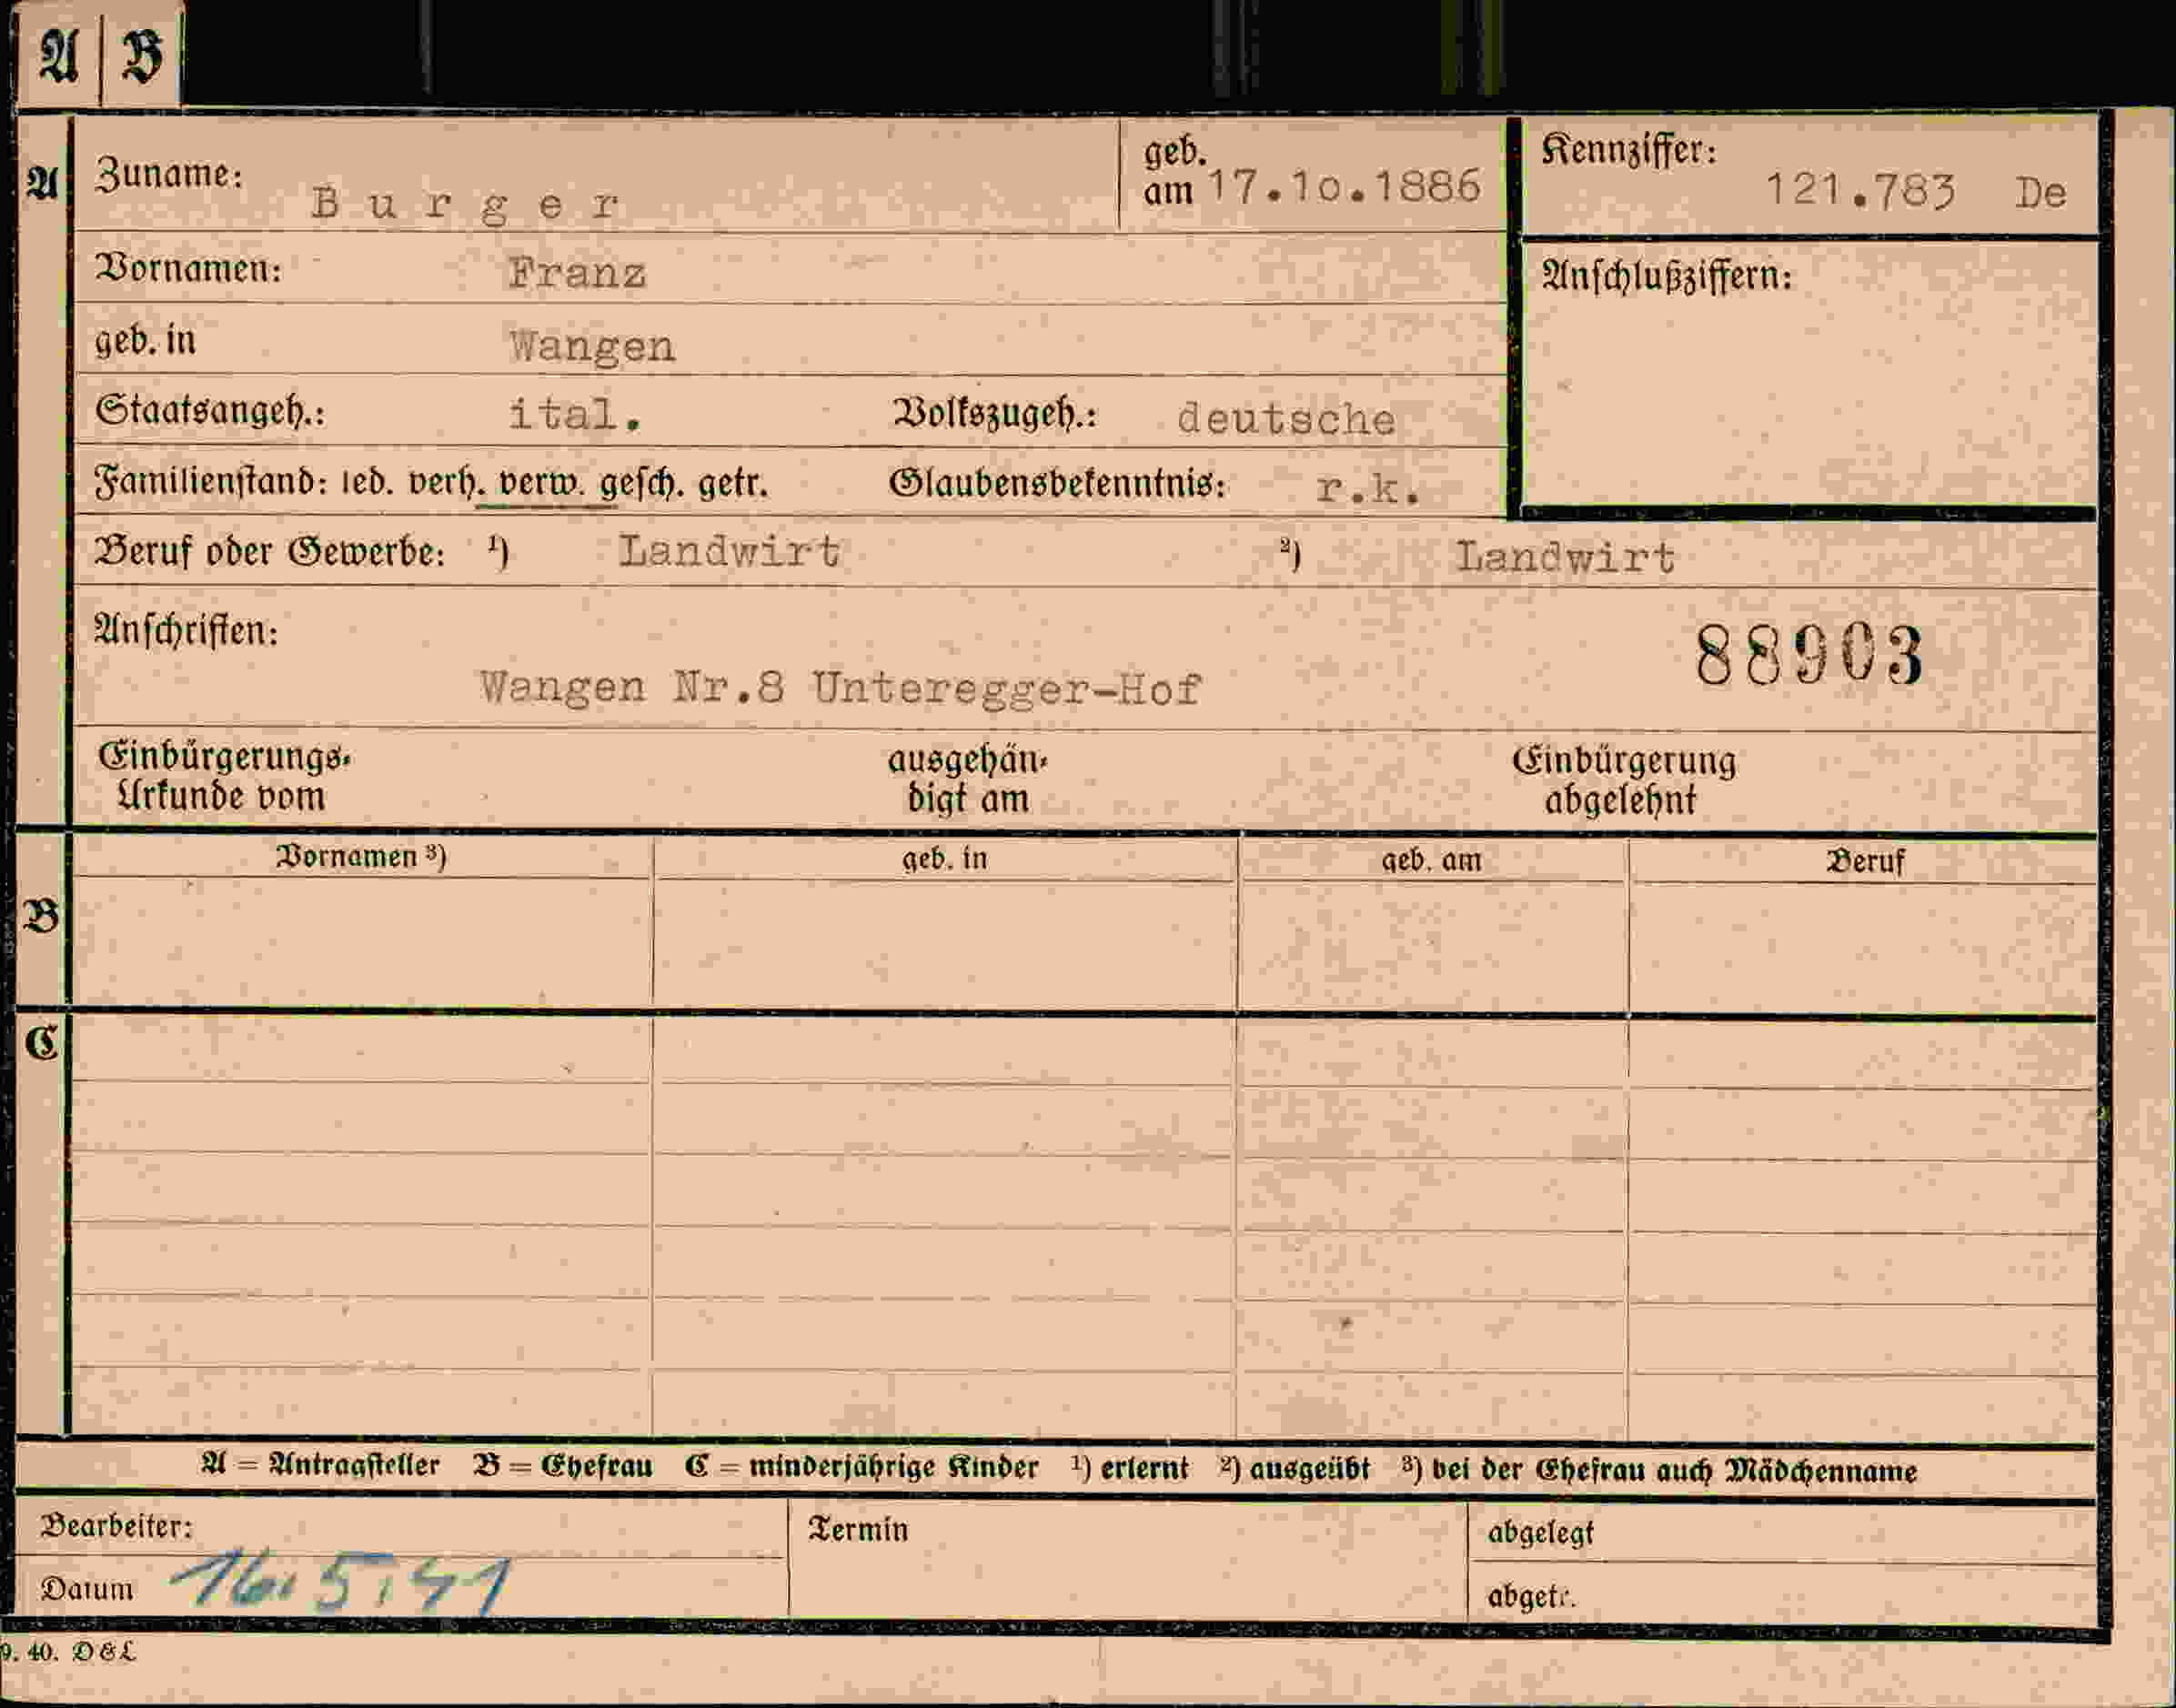 A B
A Zuname: Burger geb. am 17.10.1886 Kennziffer: 121.783 De
Vornamen: Franz Anschlußziffern:
geb. in Wangen
Staatsangeh.: ital. Volkszugeh.: deutsche
Familienstand: led. verh. verw. gesch. getr. Glaubensbekenntnis: r.k.
Beruf oder Gewerbe: ¹) Landwirt ²) Landwirt
Anschriften: 88903
Wangen Nr.8 Unteregger-Hof
Einbürgerungs- ausgehän- Einbürgerung
Urkunde vom digt am abgelehnt
Vornamen ³) geb. in geb. am Beruf
B
C
A = Antragsteller B = Ehefrau C = minderjährige Kinder ¹) erlernt ²) ausgeübt ³) bei der Ehefrau auch Mädchenname
Bearbeiter: Termin abgelegt
Datum 16.5.41 abgetr.
9. 40. D&L